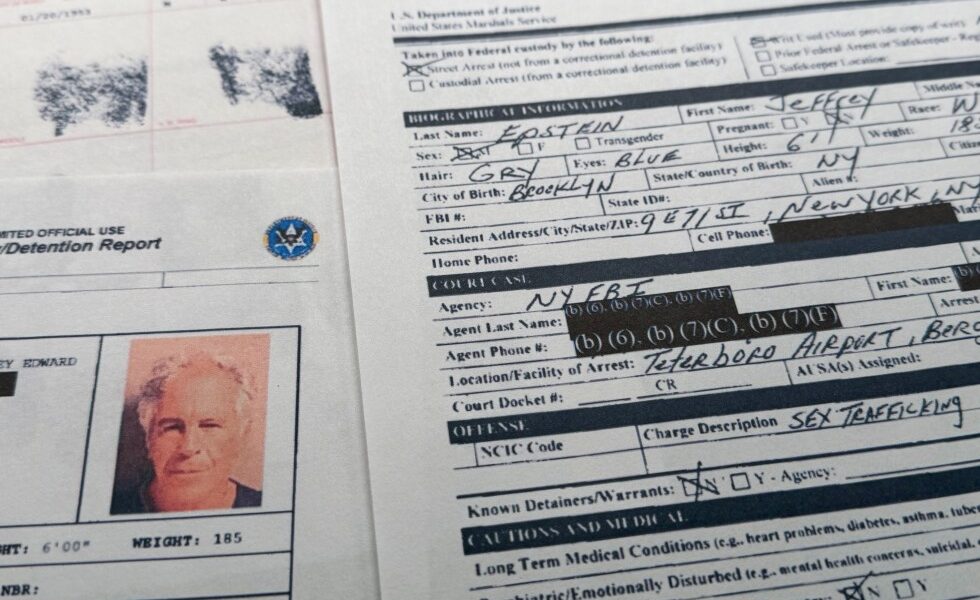 01/20/1953
MITED OFFICIAL USE
/Detention Report
EY EDWARD
GHT: 6'00" WEIGHT: 185
NBR:
U.S. Department of Justice
United States Marshals Service
Taken into Federal custody by the following:
Street Arrest (not from a correctional detention facility)
Custodial Arrest (from a correctional detention facility)
Writ Used (Must provide copy of writ)
Prior Federal Arrest or Safekeeper - Re
Safekeeper Location:
BIOGRAPHICAL INFORMATION
Last Name: EPSTEIN First Name: JEFFREY Middle N
Sex: M F Transgender Pregnant: Y N Race: W
Hair: GRY Eyes: BLUE Height: 6'1 Weight: 18
City of Birth: BROOKLYN State/Country of Birth: NY Citiz
FBI #: State ID#: Alien #:
Resident Address/City/State/ZIP: 9 E 71 ST, NEW YORK, NY
Home Phone: Cell Phone:
COURT CASE
Agency: NY FBI
Agent Last Name: (b) (6), (b) (7)(C), (b) (7)(F) First Name: (b)
Agent Phone #: (b) (6), (b) (7)(C), (b) (7)(F) Arrest
Location/Facility of Arrest: TETERBORO AIRPORT, BERG
Court Docket #: CR AUSA(s) Assigned:
OFFENSE
NCIC Code Charge Description SEX TRAFFICKING
Known Detainers/Warrants: N Y - Agency:
CAUTIONS AND MEDICAL
Long Term Medical Conditions (e.g., heart problems, diabetes, asthma, tube
Psychiatric/Emotionally Disturbed (e.g., mental health concerns, suicidal,
N Y